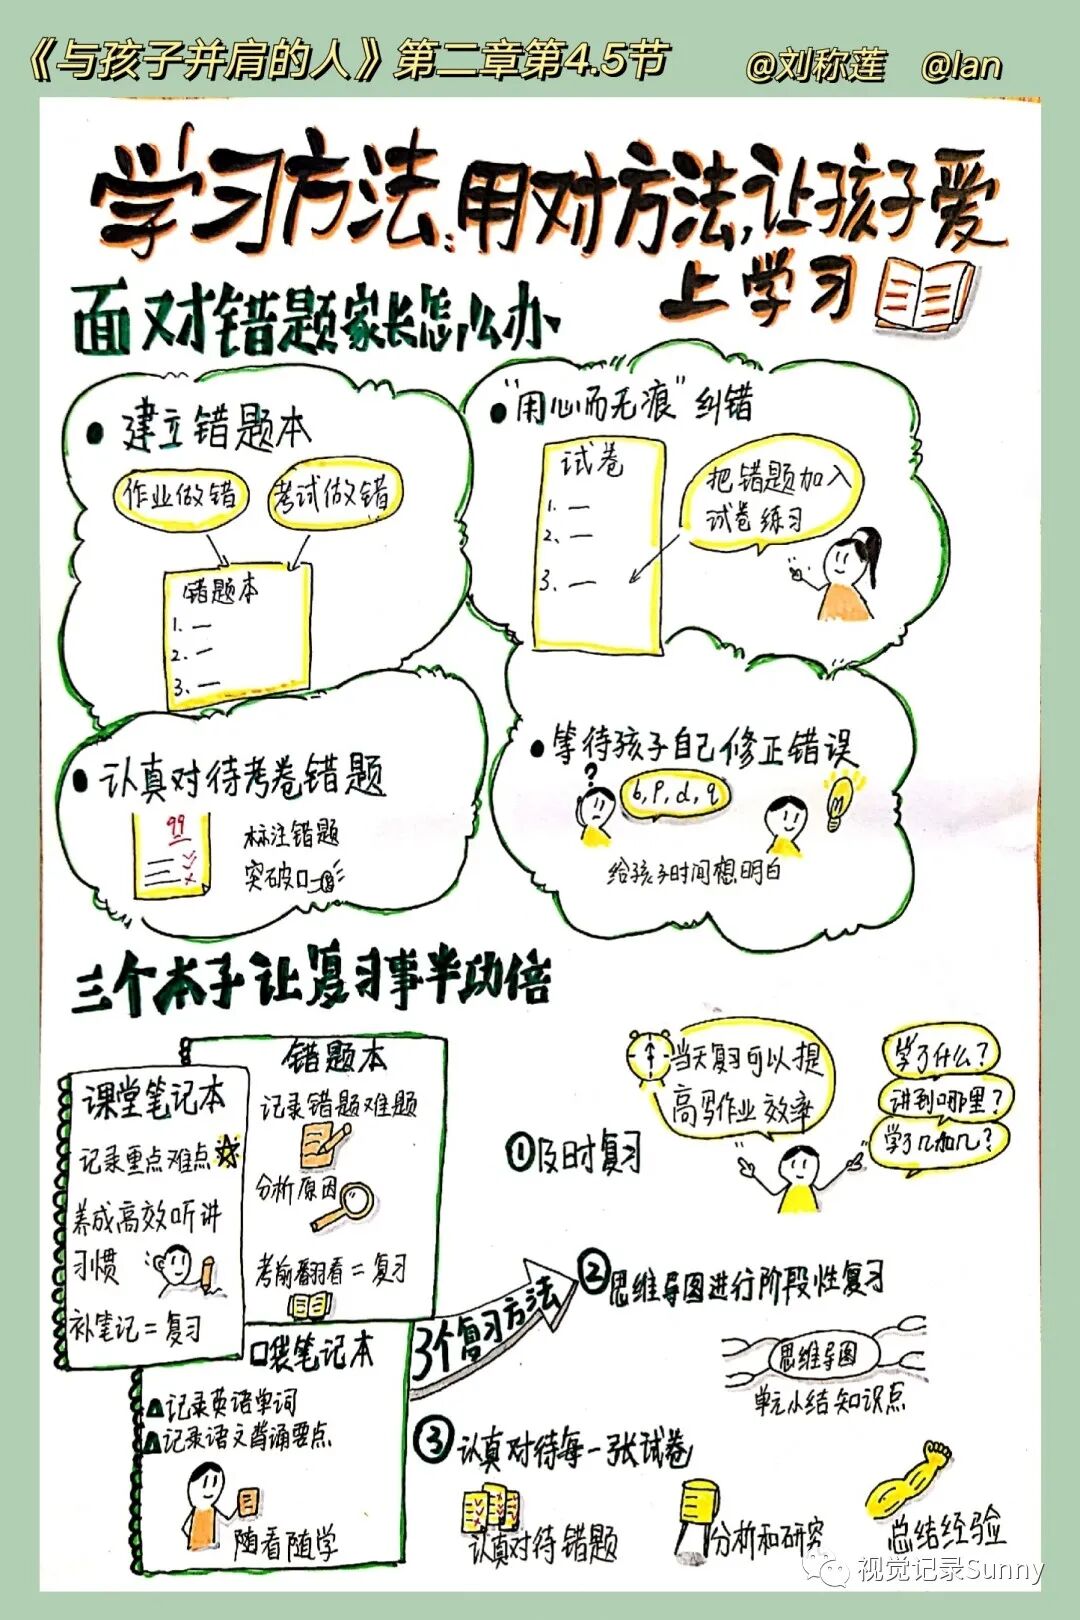 《与孩子并肩的人》第二章第4.5节
@刘称莲 @lan
学习方法:用对方法,让孩子爱
上学习
面对错题家长怎么办
建立错题本
作业做错
考试做错
错题本
1. —
2. —
3. —
"用心而无痕"纠错
试卷
1. —
2. —
3. —
把错题加入
试卷练习
认真对待考卷错题
99
标注错题
突破口
等待孩子自己修正错误
?
b, p, d, q
给孩子时间想明白
三个本子让复习事半功倍
课堂笔记本
记录重点难点
养成高效听讲
习惯
补笔记=复习
错题本
记录错题难题
分析原因
考前翻看=复习
口袋笔记本
记录英语单词
记录语文背诵要点
随看随学
3个复习方法
①及时复习
当天复习可以提
高写作业效率
学了什么?
讲到哪里?
学了几加几?
②思维导图进行阶段性复习
思维导图
单元小结知识点
③认真对待每一张试卷
认真对待错题
分析和研究
总结经验
视觉记录Sunny